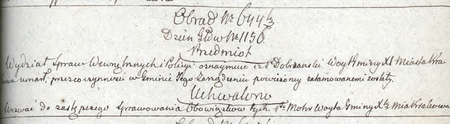 Obrad № 644½
Dzien: Głów № 1150
Przedmiot
Wydział Spraw Wewnętrznych i Policyi oznaymuie iż P. Dobrzanski Woyt Gminy XI Miasta Krakowa umarł, przezco czynności w Gminie Jego zarządzeniu powierzoney zatamowanemi zostały
Uchwalono
Wezwać do zastępczego sprawowania Obowiązków tych P. Mohr Woyta Gminy X. Miasta Krakowa